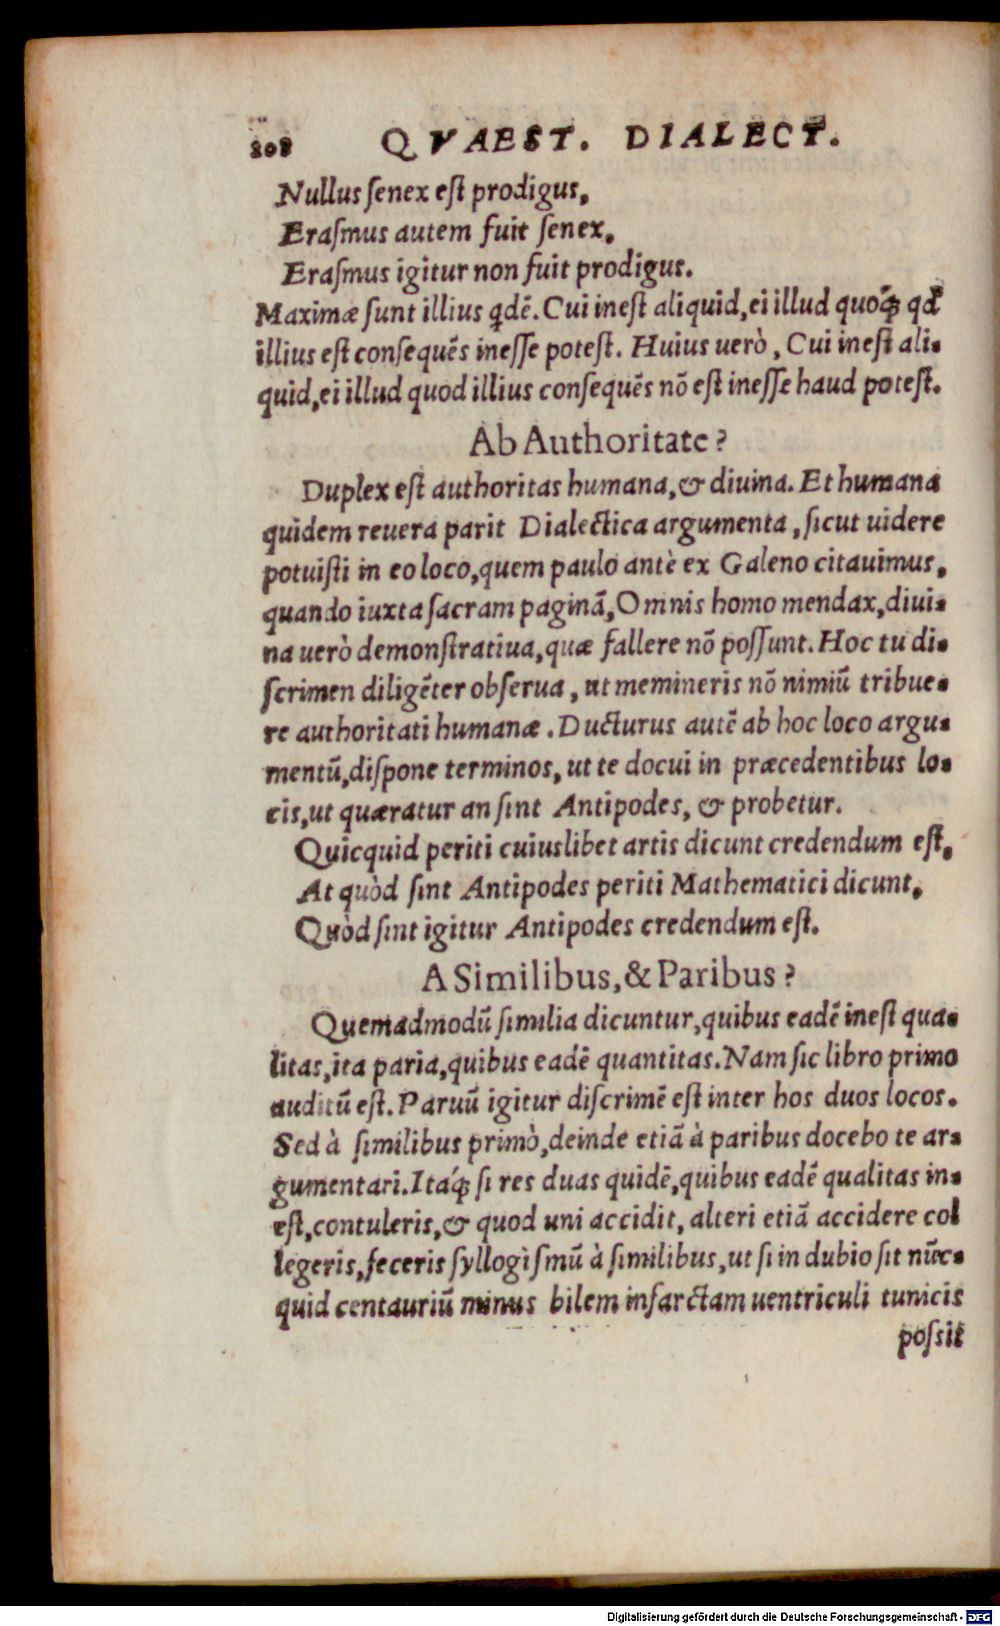 208 QVAEST. DIALECT.
Nullus ſenex eſt prodigus,
Eraſmus autem fuit ſenex,
Eraſmus igitur non fuit prodigus.
Maximæ ſunt illius qdē. Cui ineſt aliquid, ei illud quoq́; qd
illius eſt conſequēs ineſſe poteſt. Huius uerò, Cui ineſt ali-
quid, ei illud quod illius conſequēs nō eſt ineſſe haud poteſt.
Ab Authoritate?
Duplex eſt authoritas humana, & diuina. Et humana
quidem reuera parit Dialectica argumenta, ſicut uidere
potuiſti in eo loco, quem paulo antè ex Galeno citauimus,
quando iuxta ſacram paginā, Omnis homo mendax, diui-
na uerò demonſtratiua, quæ fallere nō poſſunt. Hoc tu di-
ſcrimen diligēter obſerua, ut memineris nō nimiū tribue-
re authoritati humanæ. Ducturus autē ab hoc loco argu-
mentū, diſpone terminos, ut te docui in præcedentibus lo-
cis, ut quæratur an ſint Antipodes, & probetur.
Quicquid periti cuiuslibet artis dicunt credendum eſt,
At quòd ſint Antipodes periti Mathematici dicunt,
Quòd ſint igitur Antipodes credendum eſt.
A Similibus, & Paribus?
Quemadmodū ſimilia dicuntur, quibus eadē ineſt qua-
litas, ita paria, quibus eadē quantitas. Nam ſic libro primo
auditū eſt. Paruū igitur diſcrimē eſt inter hos duos locos.
Sed à ſimilibus primò, deinde etiā à paribus docebo te ar-
gumentari. Itaq́; ſi res duas quidē, quibus eadē qualitas in-
eſt, contuleris, & quod uni accidit, alteri etiā accidere col
legeris, feceris ſyllogiſmū à ſimilibus, ut ſi in dubio ſit nūc-
quid centauriū minus bilem infarctam uentriculi tunicis
poſsit
Digitalisierung gefördert durch die Deutsche Forschungsgemeinschaft - DFG